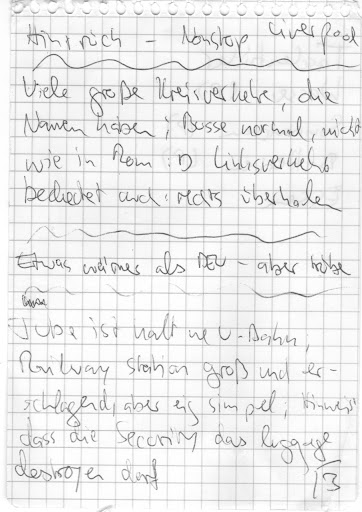 Hinreich - Nonstop Liverpool
Viele große Kreisverkehre, die
Namen haben; Busse normal, nicht
wie in Rom :D Linksverkehr
bedeutet auch: rechts überholen
Etwas wärmer als DEU - aber trübe
Tube ist halt ne U-Bahn,
Railway Station groß und er-
schlagend, aber eig simpel; Hinweis
dass die Security das luggage
destroyen darf
13